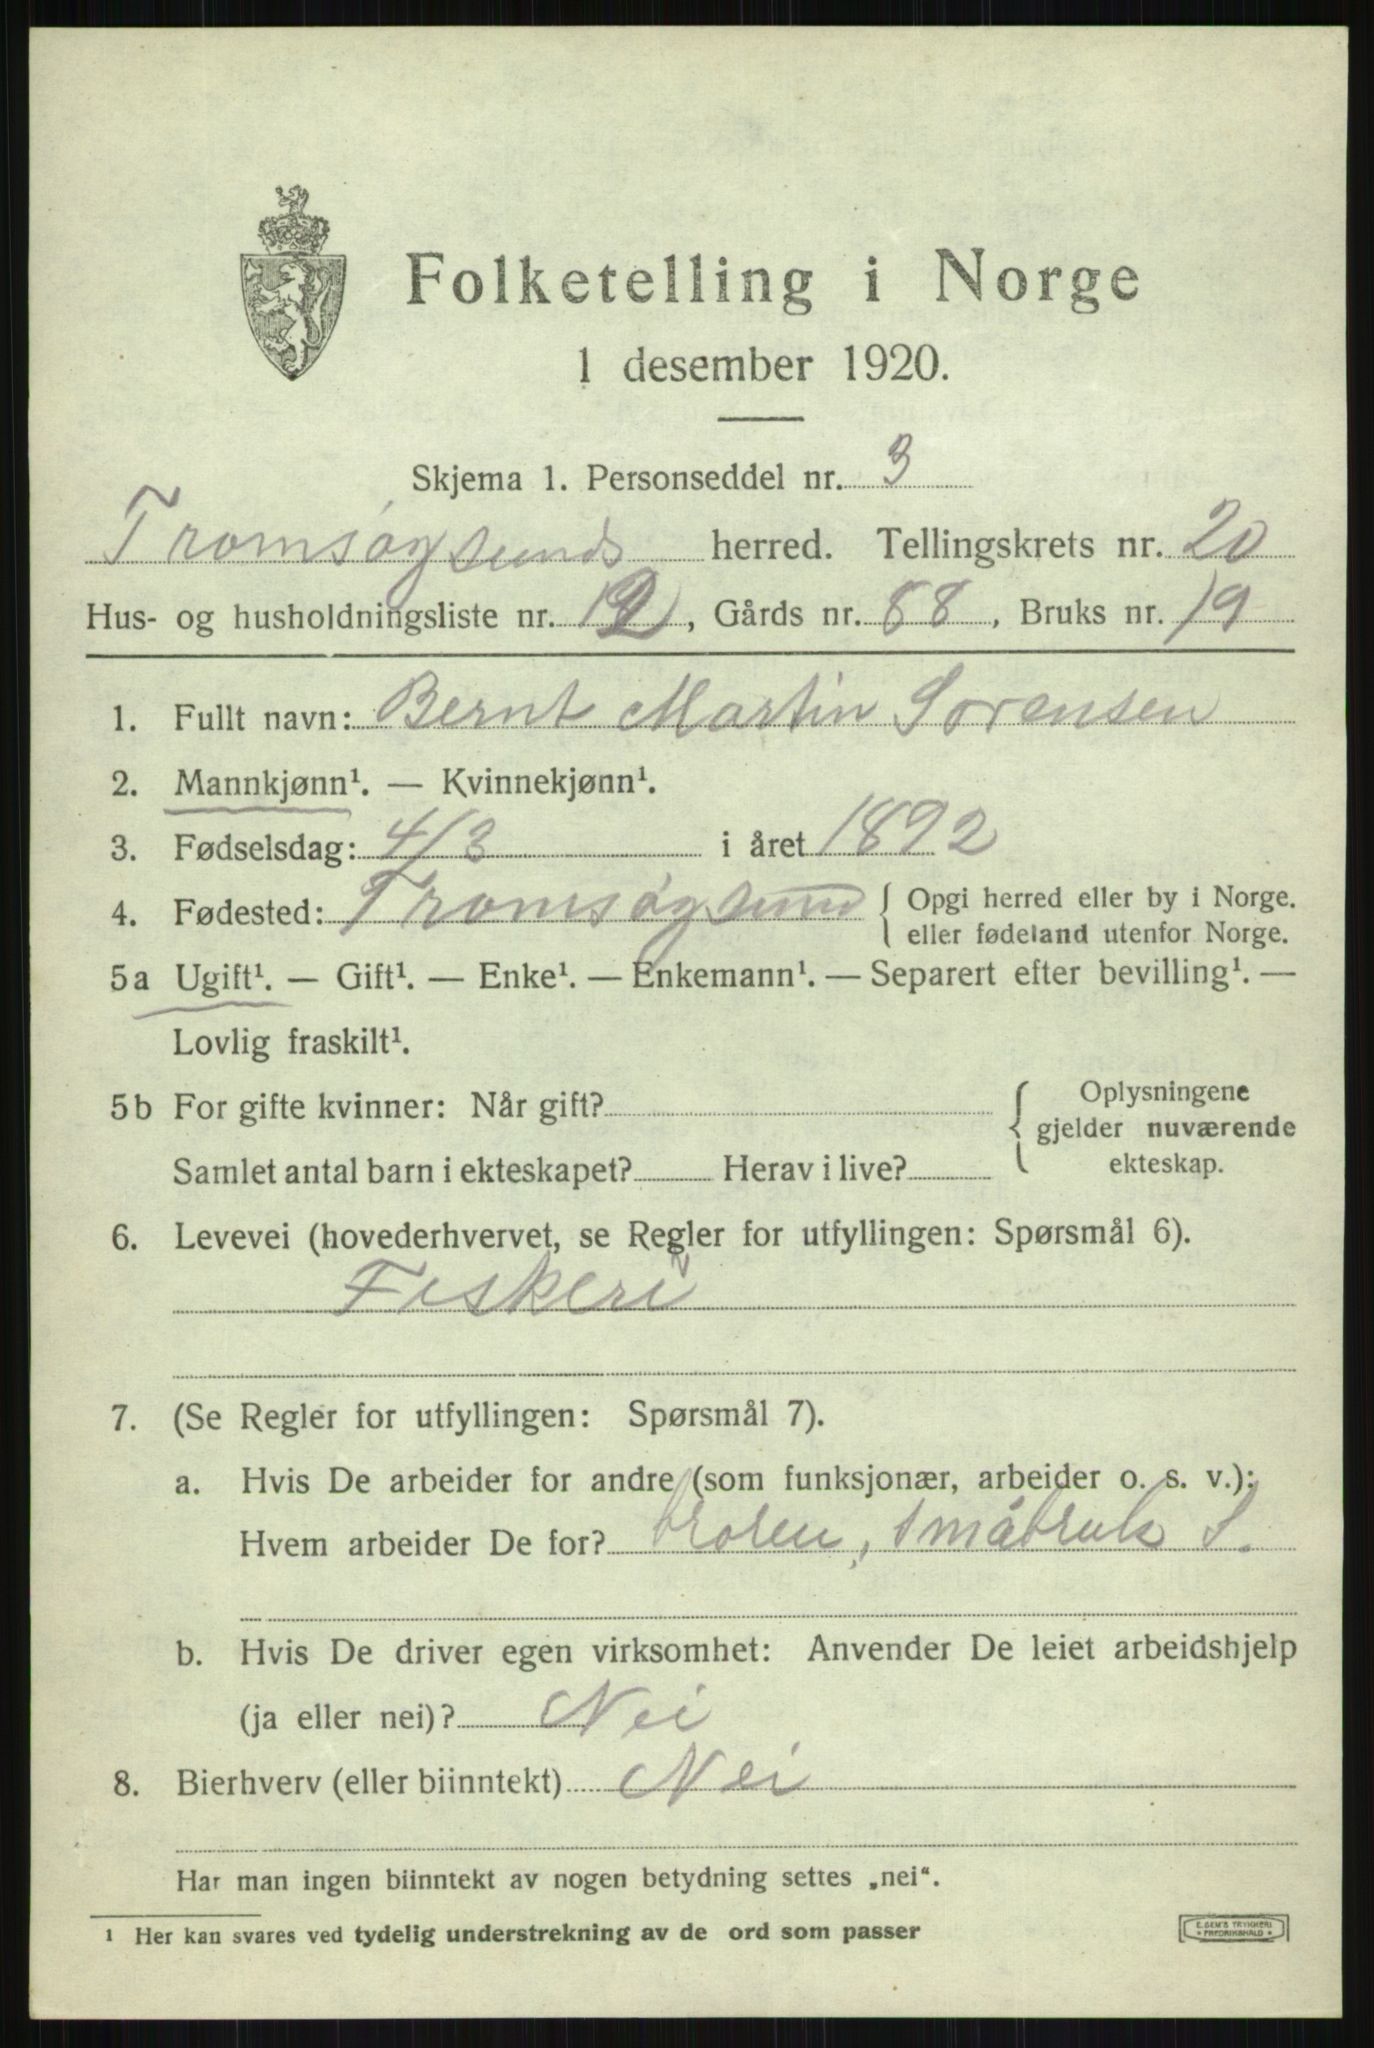 Folketelling i Norge
1 desember 1920.
Skjema 1. Personseddel nr. 3
Tromsøysunds herred. Tellingskrets nr. 20
Hus- og husholdningsliste nr. 12, Gårds nr. 88, Bruks nr. 19
1. Fullt navn: Bernt Martin Sorensen
2. Mannkjønn¹. — Kvinnekjønn¹.
3. Fødselsdag: 4/3 i året 1892
4. Fødested: Tromsøysund { Opgi herred eller by i Norge.
eller fødeland utenfor Norge.
5a Ugift¹. — Gift¹. — Enke¹. — Enkemann¹. — Separert efter bevilling¹. —
Lovlig fraskilt¹.
5b For gifte kvinner: Når gift? { Oplysningene
gjelder nuværende
Samlet antal barn i ekteskapet? Herav i live? ekteskap.
6. Levevei (hovederhvervet, se Regler for utfyllingen: Spørsmål 6).
Fiskeri
7. (Se Regler for utfyllingen: Spørsmål 7).
a. Hvis De arbeider for andre (som funksjonær, arbeider o. s. v.):
Hvem arbeider De for? broren, småbruk S.
b. Hvis De driver egen virksomhet: Anvender De leiet arbeidshjelp
(ja eller nei)? Nei
8. Bierhverv (eller biinntekt) Nei
Har man ingen biinntekt av nogen betydning settes „nei“.
¹ Her kan svares ved tydelig understrekning av de ord som passer
E. SEM'S TRYKKERI
* FREDRIKSHALD *